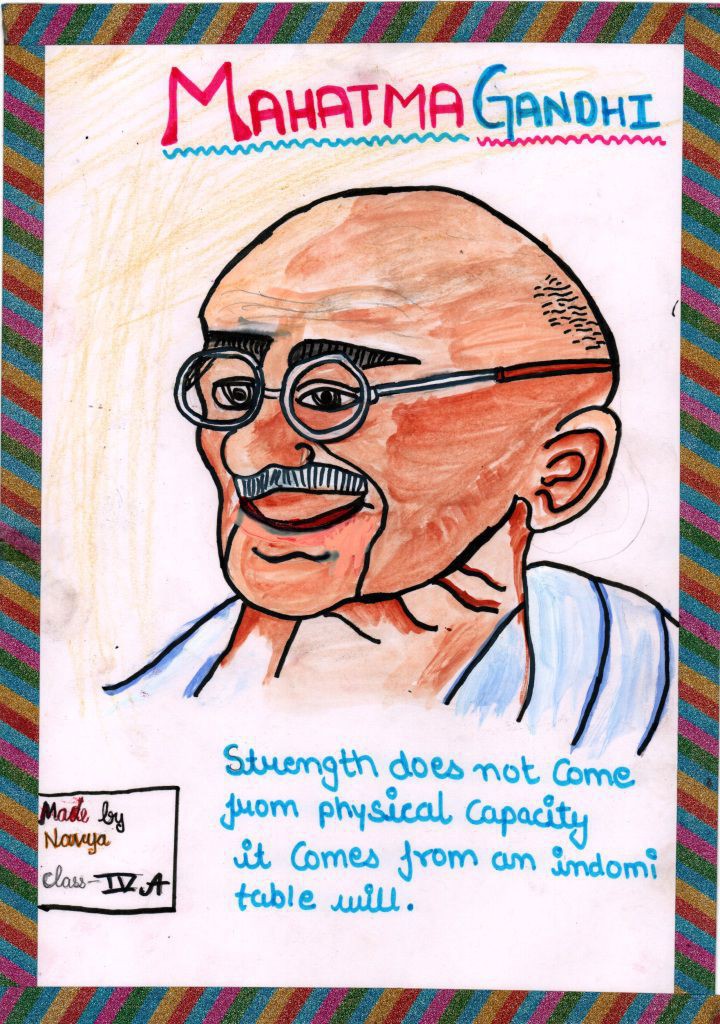 MAHATMA GANDHI
Strength does not Come
from physical Capacity
it Comes from an indomi
table will.
Made by
Navya
Class-IV A